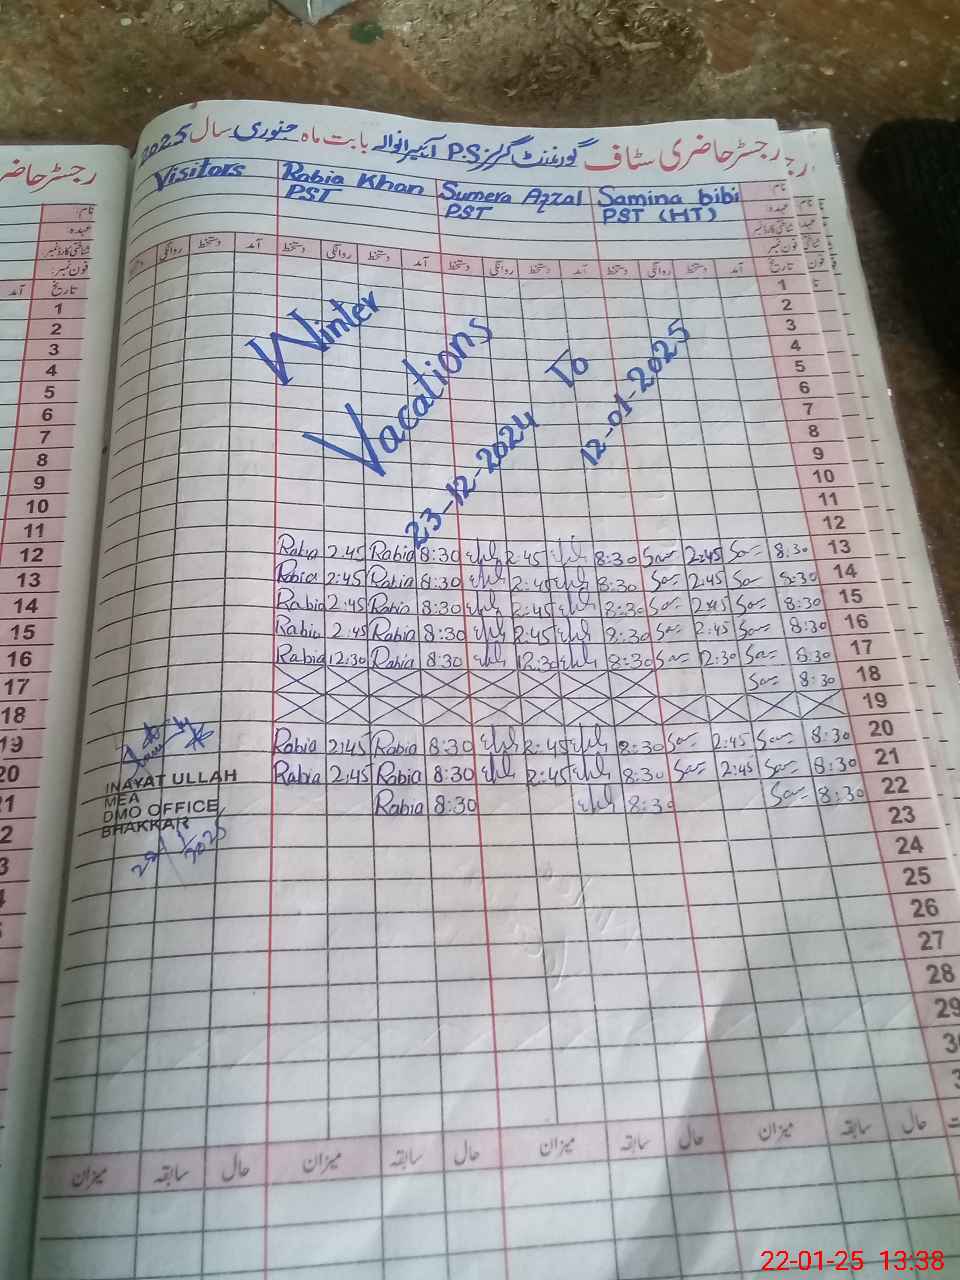 رجسٹر حاضری سٹاف گورنمنٹ گرلز P.S بابت ماہ جنوری سال 2025
Visitors
Rabia Khan
PST
Sumera Afzal
PST
Samina bibi
PST (HT)
نام:
عہدہ:
شناختی کارڈ نمبر:
فون نمبر:
تاریخ آمد دستخط روانگی دستخط آمد دستخط روانگی دستخط آمد دستخط روانگی دستخط آمد دستخط روانگی
1
2
3
4
5
6
7
8
9
10
11
12
Winter
Vacations
23-12-2024 To
12-01-2025
Rabia 2:45 Rabia 8:30 2:45 8:30 2:45 8:30 13
Rabia 2:45 Rabia 8:30 2:45 8:30 2:45 8:30 14
Rabia 2:45 Rabia 8:30 2:45 8:30 2:45 8:30 15
Rabia 2:45 Rabia 8:30 2:45 8:30 2:45 8:30 16
Rabia 12:30 Rabia 8:30 12:30 8:30 12:30 8:30 17
8:30 18
19
Rabia 2:45 Rabia 8:30 2:45 8:30 2:45 8:30 20
Rabia 2:45 Rabia 8:30 2:45 8:30 2:45 8:30 21
Rabia 8:30 8:30 8:30 22
23
24
25
26
27
28
29
INAYAT ULLAH
MEA
DMO OFFICE,
BHAKKAR
حال سابقہ میزان حال سابقہ میزان حال سابقہ میزان
رجسٹر حاضری
نام:
عہدہ:
شناختی کارڈ نمبر:
فون نمبر:
تاریخ آمد
1
2
3
4
5
6
7
8
9
10
11
12
13
14
15
16
17
18
19
20
22-01-25 13:38